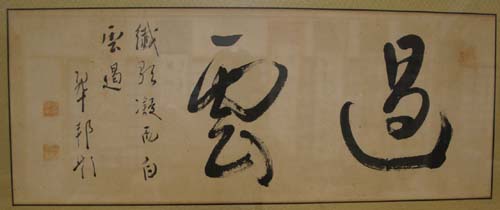 遏雲
纖歌凝而白
雲遏
邦